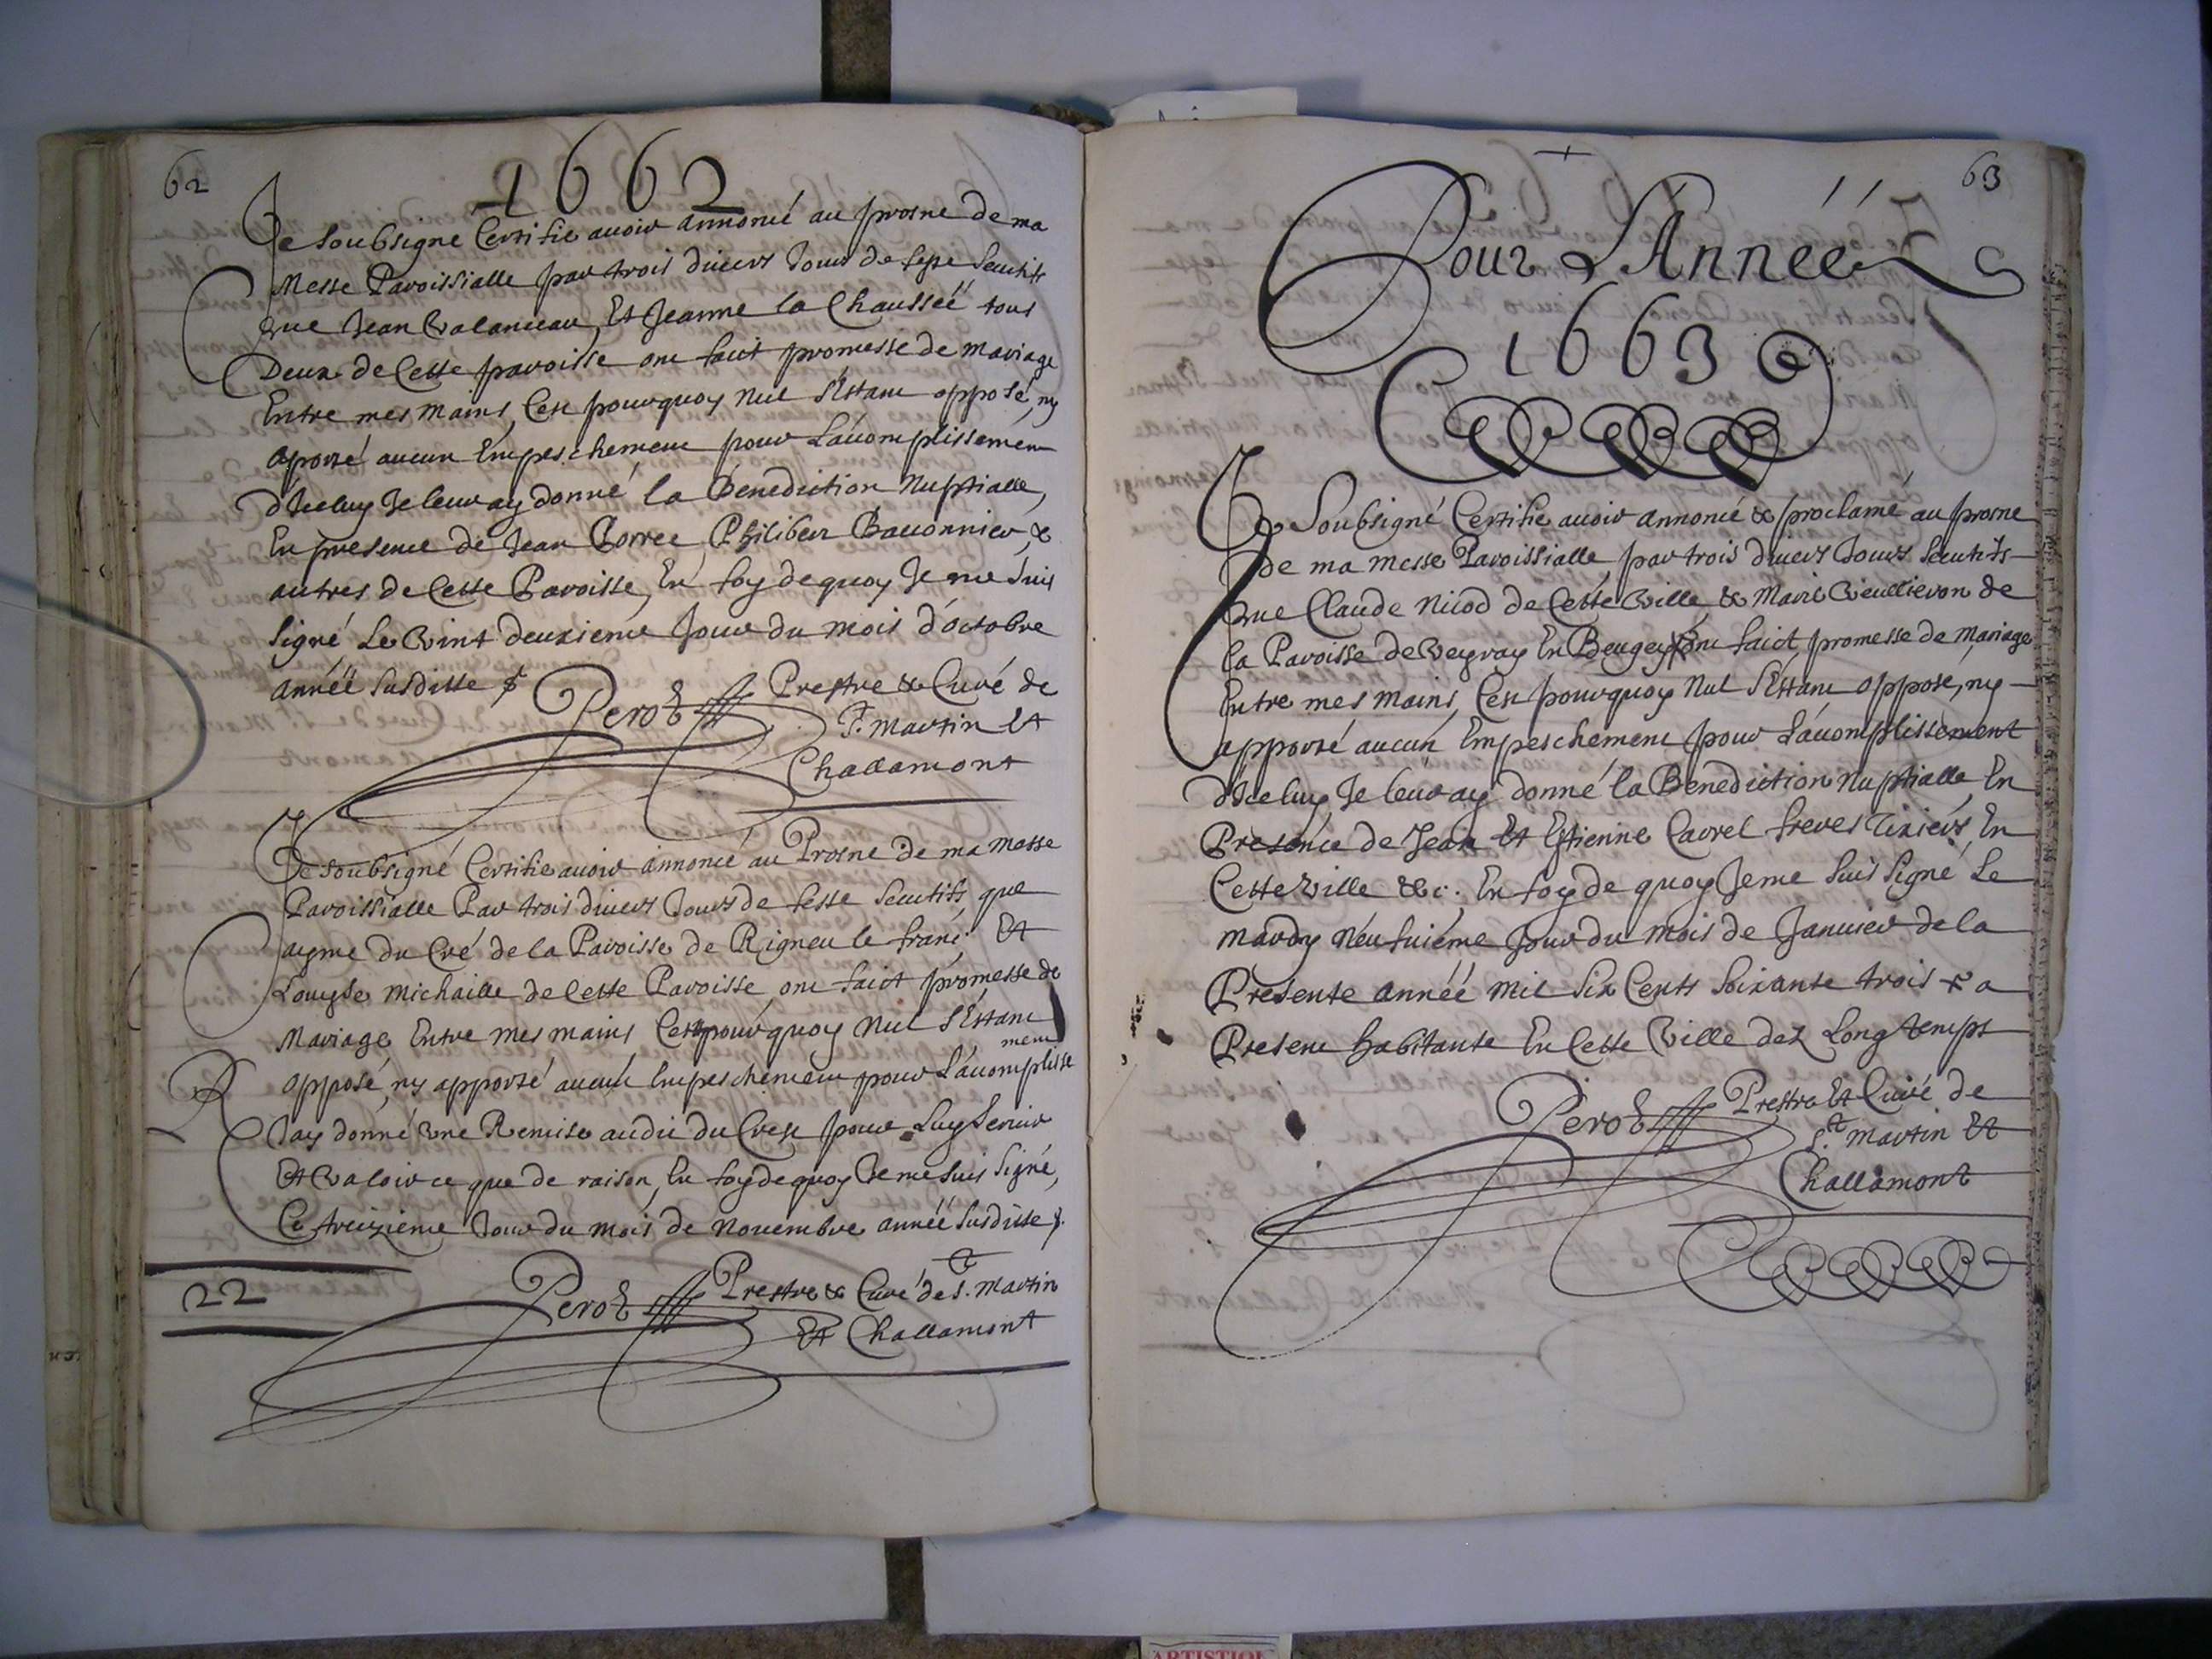 62
1662
Je soubsigné Certifie auoir annoncé au prosne de ma
Messe Paroissialle par trois diuers Jours de feste secutifs
que Jean Valanceau, Et Jeanne la Chausseë tous
Deux de Cette paroisse ont faict promesse de mariage
Entre mes mains, Cest pourquoy nul s'Estant opposé, ny
aporté aucun Empeschement pour L'acomplissement
d'Iceluy Je leur ay donné la Benediction Nuptialle,
En presence de Jean Philibert Baronnier, &
autres de Cette Paroisse, En foy de quoy Je me suis
signé Le Vint deuxieme Jour du mois d'octobre
anneë susditte
Perot Prestre & Curé de
St. Martin Et
Challamont
Je soubsigné Certifie auoir annoncé au Prosne de ma messe
Paroissialle Par trois diuers Jours de feste secutifs que
aymé du Cré de la Paroisse de Rigneu le franc Et
Louyse Michaille de Cette Paroisse ont faict promesse de
Mariage Entre mes mains Cest pourquoy nul s'Estant
ment
opposé, ny apporté aucun Empeschement pour L'acomplisse
R Jay donné Vne Remise audit du Crest pour Luy seruir
Et Valoir ce que de raison, En foy de quoy Je me suis signé,
Ce treizieme Jour du mois de nouembre anneë susditte
22
Perot Prestre & Curé de St. Martin
Et Challamont
63
Pour L'Anneë
1663
Je Soubsigné Certifie auoir annoncé & proclamé au prosne
de ma messe Paroissialle par trois diuers Jours secutifs
que Claude Nicod de Cette Ville & Marie Vieullieron de
la Paroisse de Veyray En Beugey ont faict promesse de mariage
Entre mes mains, Cest pourquoy nul s'Estant opposé, ny
apporté aucun Empeschement pour L'acomplissement
d'Iceluy Je leur ay donné la Benediction Nuptialle, En
Presence de Jean Et Estienne Carrel freres Tixiers En
Cette Ville &c. En foy de quoy Je me suis signé Le
mardy neufuiéme Jour du mois de Januier de la
Presente anneë mil six Cents soixante trois + a
Present habitante En Cette Ville dez Long temps
Perot Prestre Et Curé de
St. Martin Et
Challamont